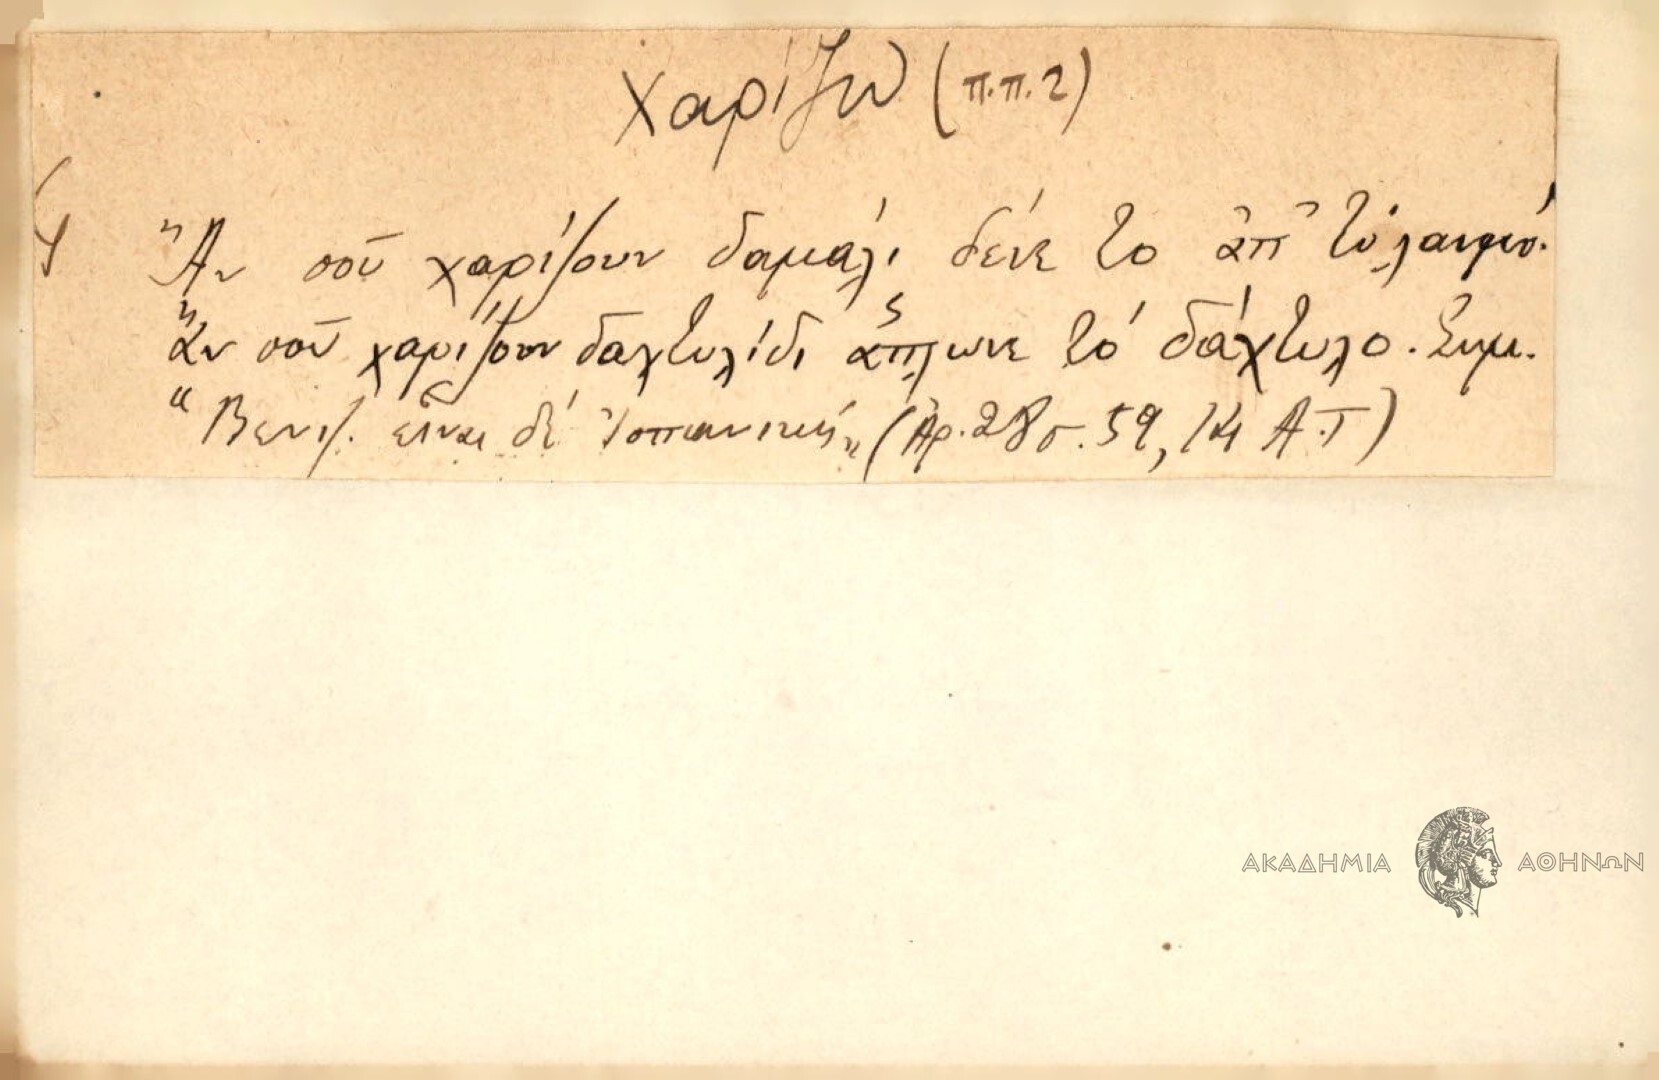 χαρίζω (π.π.2)
Ἂν σοῦ χαρίζουν δαμάλι δένε το ἀπ' τὸ λαιμό.
Ἂν σοῦ χαρίζουν δαχτυλίδι ἅπλωνε τὸ δάχτυλο. Σημ.
"Βενιζ. εἶναι δὲ Ἱσπανική" (Ἀρ. 28 σ. 59, 14 Α.Τ)
ΑΚΑΔΗΜΙΑ ΑΘΗΝΩΝ